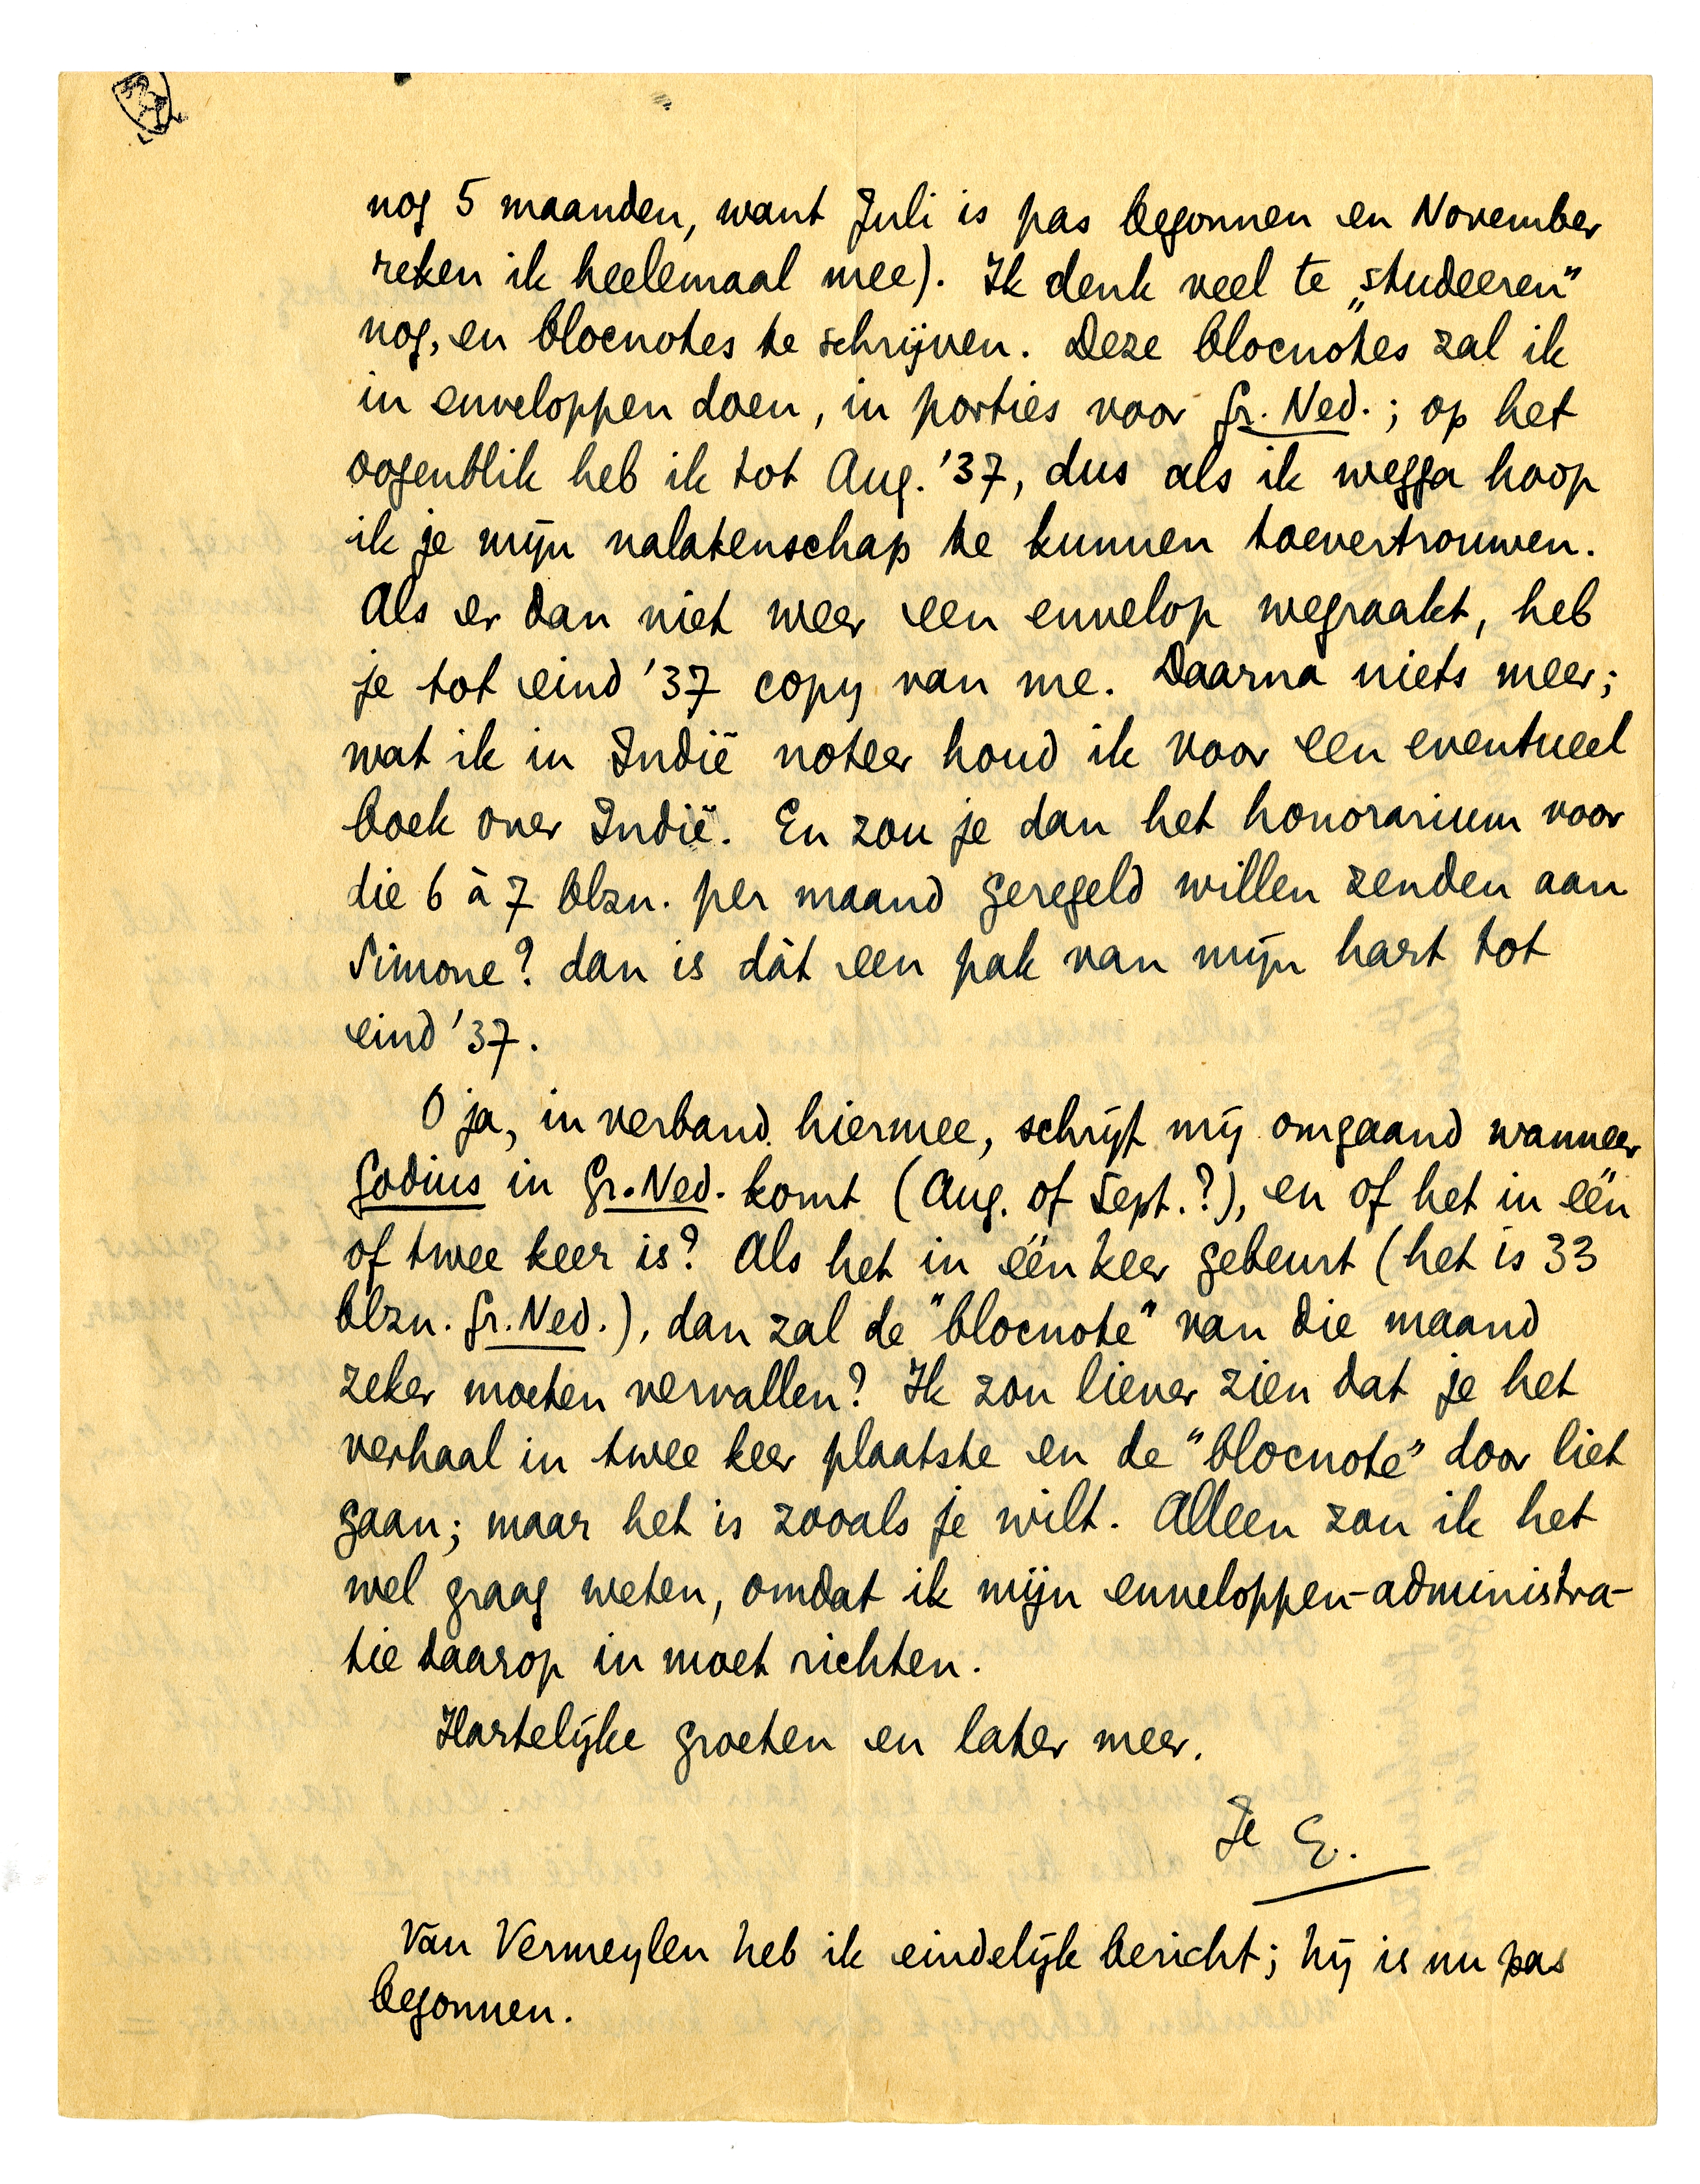 nog 5 maanden, want Juli is pas begonnen en November
reken ik heelemaal mee). Ik denk veel te „studeeren”
nog, en blocnotes te schrijven. Deze blocnotes zal ik
in enveloppen doen, in porties voor Gr. Ned.; op het
oogenblik heb ik tot Aug. '37, dus als ik wegga hoop
ik je mijn nalatenschap te kunnen toevertrouwen.
Als er dan niet weer een envelop wegraakt, heb
je tot eind '37 copy van me. Daarna niets meer;
wat ik in Indië noteer houd ik voor een eventueel
boek over Indië. En zou je dan het honorarium voor
die 6 à 7 blzn. per maand geregeld willen zenden aan
Simone? dan is dàt een pak van mijn hart tot
eind '37.
O ja, in verband hiermee, schrijf mij omgaand wanneer
Godius in Gr. Ned. komt (Aug. of Sept.?), en of het in één
of twee keer is? Als het in één keer gebeurt (het is 33
blzn. Gr. Ned.), dan zal de "blocnote" van die maand
zeker moeten vervallen? Ik zou liever zien dat je het
verhaal in twee keer plaatste en de "blocnote" door liet
gaan; maar het is zooals je wilt. Alleen zou ik het
wel graag weten, omdat ik mijn enveloppen-administra-
tie daarop in moet richten.
Hartelijke groeten en later meer.
Je E.
Van Vermeylen heb ik eindelijk bericht; hij is nu pas
begonnen.